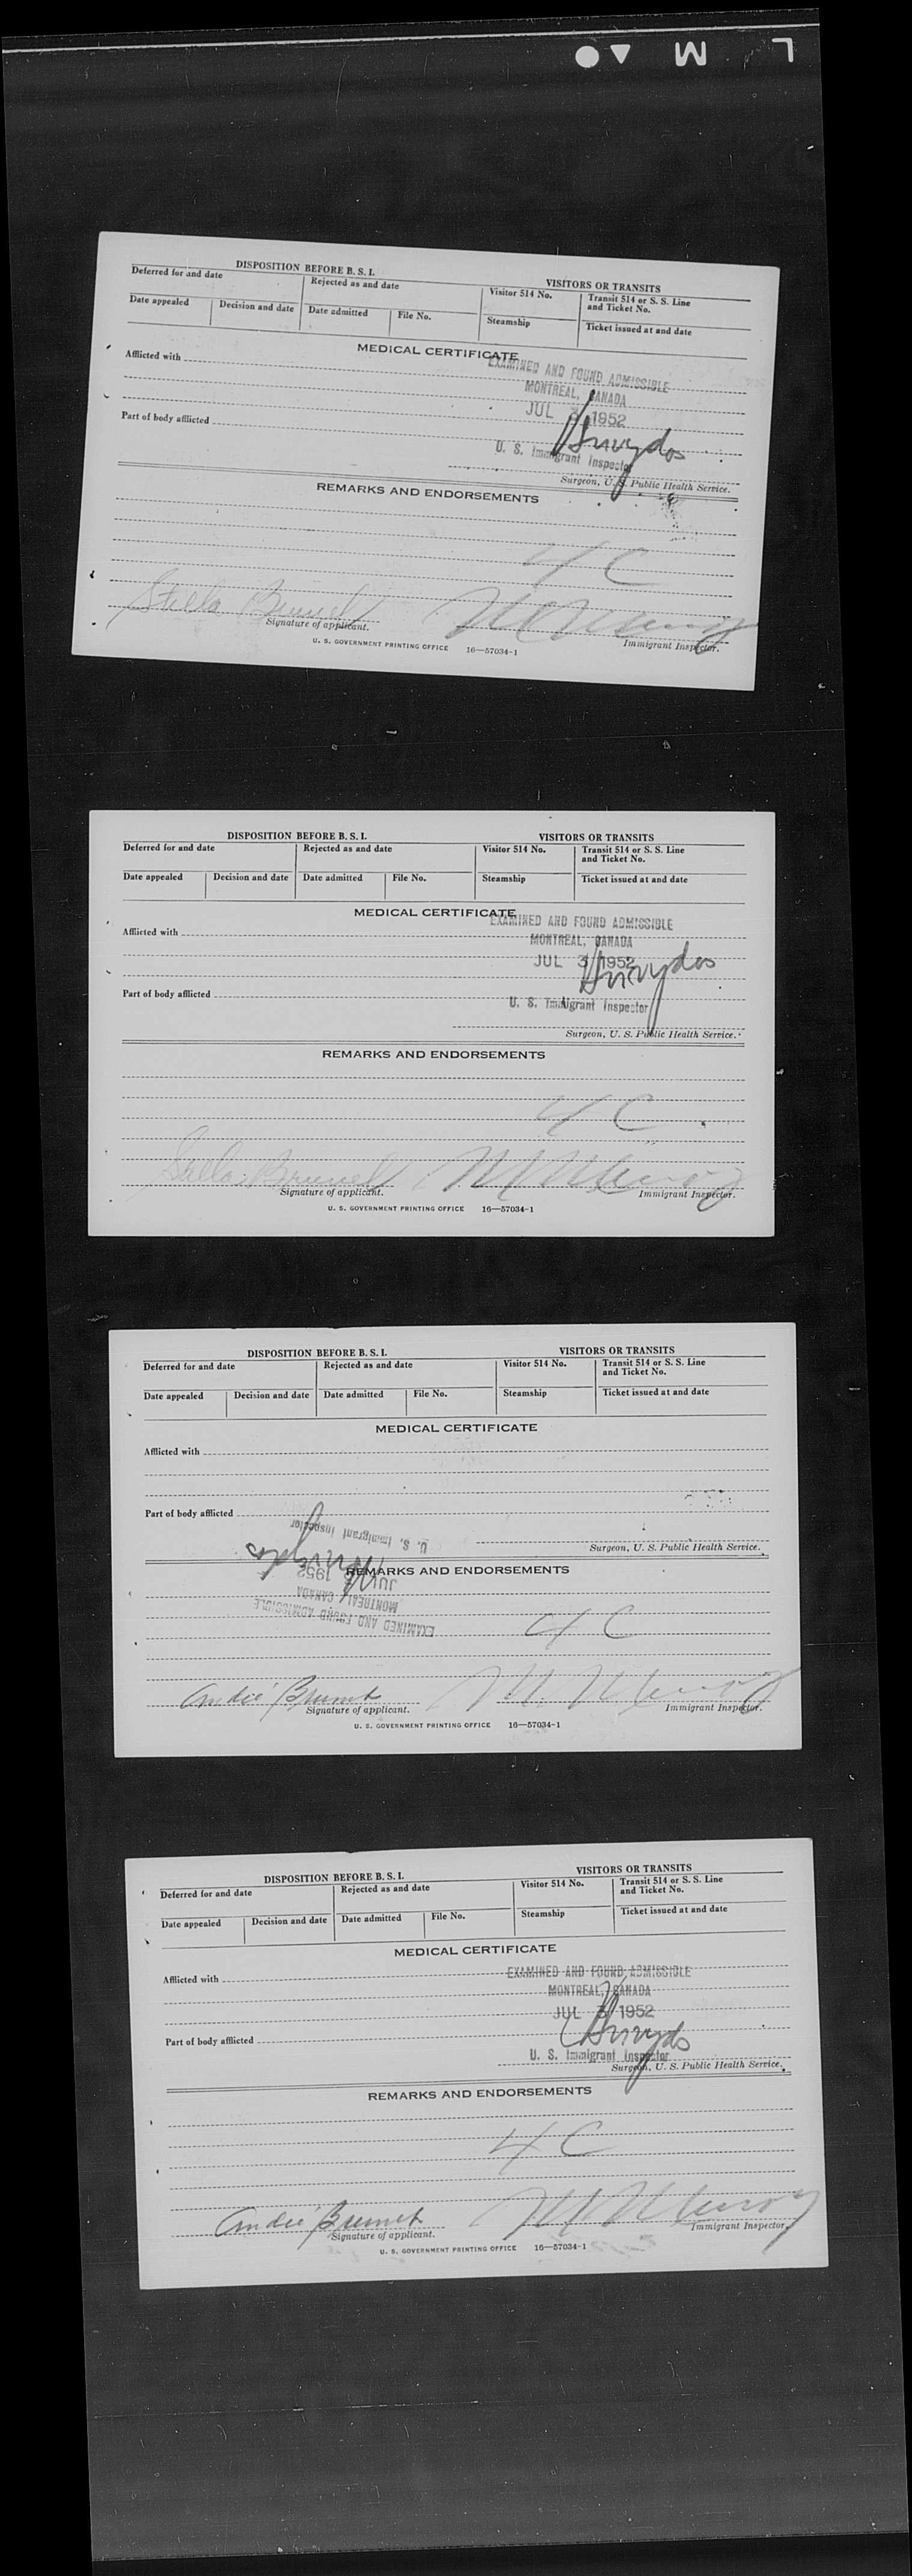 L M
DISPOSITION BEFORE B. S. I. VISITORS OR TRANSITS
Deferred for and date Rejected as and date Visitor 514 No. Transit 514 or S. S. Line and Ticket No.
Date appealed Decision and date Date admitted File No. Steamship Ticket issued at and date
MEDICAL CERTIFICATE
EXAMINED AND FOUND ADMISSIBLE
Afflicted with
MONTREAL, CANADA
JUL 3 1952
Part of body afflicted
U. S. Immigrant Inspector
Surgeon, U. S. Public Health Service.
REMARKS AND ENDORSEMENTS
4 C
Stella
Signature of applicant. Immigrant Inspector.
U. S. GOVERNMENT PRINTING OFFICE 16—57034-1
DISPOSITION BEFORE B. S. I. VISITORS OR TRANSITS
Deferred for and date Rejected as and date Visitor 514 No. Transit 514 or S. S. Line and Ticket No.
Date appealed Decision and date Date admitted File No. Steamship Ticket issued at and date
MEDICAL CERTIFICATE
EXAMINED AND FOUND ADMISSIBLE
Afflicted with
MONTREAL, CANADA
JUL 3 1952
Part of body afflicted
U. S. Immigrant Inspector
Surgeon, U. S. Public Health Service.
REMARKS AND ENDORSEMENTS
4 C
Signature of applicant. Immigrant Inspector.
U. S. GOVERNMENT PRINTING OFFICE 16—57034-1
DISPOSITION BEFORE B. S. I. VISITORS OR TRANSITS
Deferred for and date Rejected as and date Visitor 514 No. Transit 514 or S. S. Line and Ticket No.
Date appealed Decision and date Date admitted File No. Steamship Ticket issued at and date
MEDICAL CERTIFICATE
Afflicted with
Part of body afflicted
U. S. Immigrant Inspector
Surgeon, U. S. Public Health Service.
REMARKS AND ENDORSEMENTS
JUL 3 1952
MONTREAL, CANADA
EXAMINED AND FOUND ADMISSIBLE
4 C
André Brunet
Signature of applicant. Immigrant Inspector.
U. S. GOVERNMENT PRINTING OFFICE 16—57034-1
DISPOSITION BEFORE B. S. I. VISITORS OR TRANSITS
Deferred for and date Rejected as and date Visitor 514 No. Transit 514 or S. S. Line and Ticket No.
Date appealed Decision and date Date admitted File No. Steamship Ticket issued at and date
MEDICAL CERTIFICATE
Afflicted with
EXAMINED AND FOUND ADMISSIBLE
MONTREAL, CANADA
JUL 3 1952
Part of body afflicted
U. S. Immigrant Inspector
Surgeon, U. S. Public Health Service.
REMARKS AND ENDORSEMENTS
4 C
André Brunet
Signature of applicant. Immigrant Inspector.
U. S. GOVERNMENT PRINTING OFFICE 16—57034-1